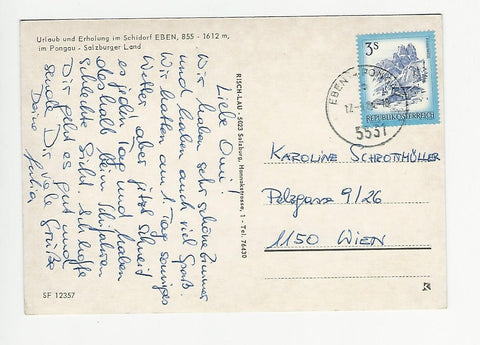 Urlaub und Erholung im Schidorf EBEN, 855 - 1612 m,
im Pongau - Salzburger Land
Liebe Omi!
Wir haben sehr schöne Zimmer
und haben auch viel Spaß.
Wir hatten am 1. Tag sonniges
Wetter aber jetzt schneit
es jeden Tag und haben
deshalb beim Schifahren
schlechte Sicht. Ich hoffe
Dir geht es gut und
sende Dir viele Grüße
Deine
Julia
SF 12357
RISCH-LAU - 5023 Salzburg, Hannakstrasse, 1 - Tel. 76430
3 S
REPUBLIK ÖSTERREICH
EBEN
5531
KAROLINE SCHROTTMÜLLER
Pelzgasse 9/26
1150 WIEN